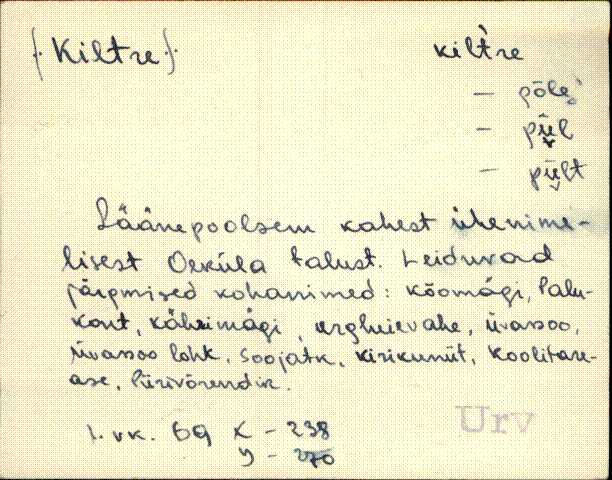 {·Kiltre}·
kilt̀re
— põle
— piil
— piilt
Läänepoolsem kahest ühenime-
lisest Oeküla talust. Leiduvad
järgmised kohanimed: kõomägi, Palu-
kont, kährimägi, orghuievahe, üvassoo,
üvassoo lohk, soojatk, kirikuniit, koolitare-
ase, Piirivõrendik.
1. vk. 69 x – 238
y – 270
Urv